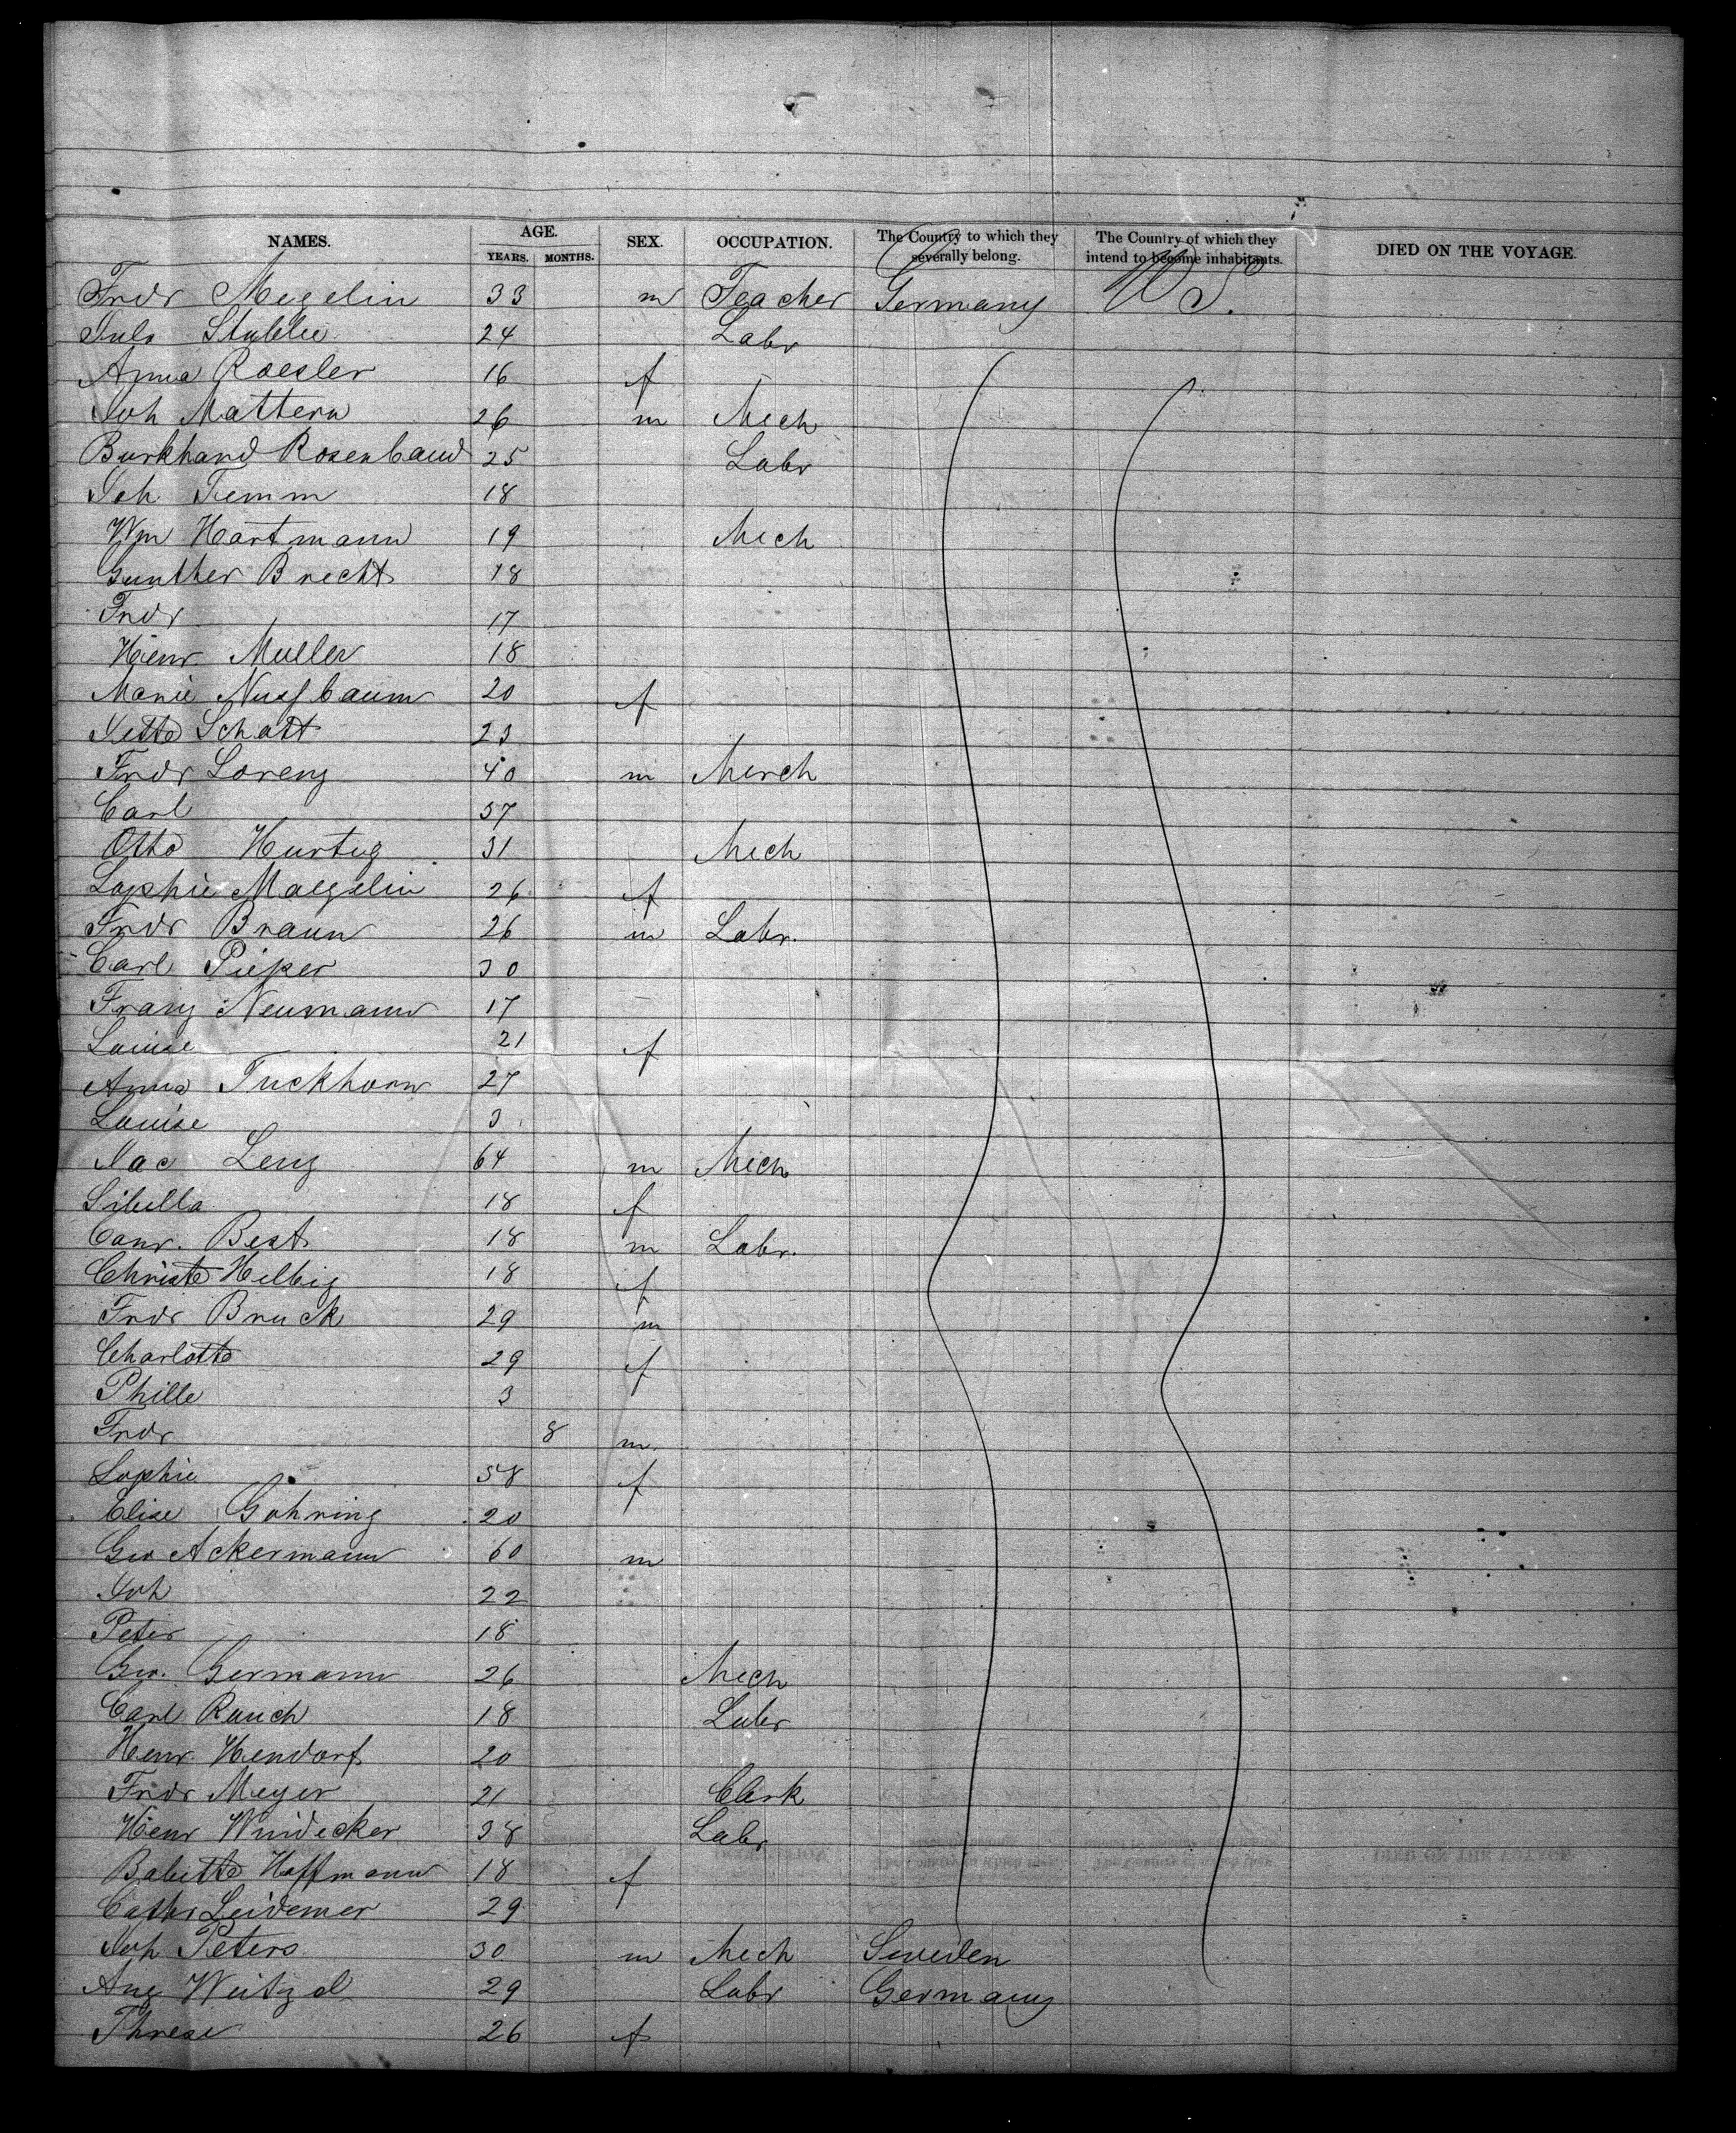 NAMES. AGE. YEARS. MONTHS. SEX. OCCUPATION. The Country to which they severally belong. The Country of which they intend to become inhabitants. DIED ON THE VOYAGE.
Fridr Megelin 33 m Teacher Germany U S.
Juls 24 Labr
Anna Roesler 16 f
Joh Mattern 26 m Mech
Burkhard Rosenbaud 25 Labr
Joh Temm 18
Wm Hartmann 19 Mech
Gunther Brecht 18
Fridr 17
Heinr Muller 18
Marie Nussbaum 20 f
Jette Schatt 23
Fridr Lorenz 40 m Merch
Carl 37
Otto Hurtug 31 Mech
Sophie Maegelin 26 f
Fridr Braun 26 m Labr.
Carl Pieper 30
Franz Neumann 17
Louise 21 f
Anna Tuckhorn 27
Louise 3
Jac Lenz 64 m Mech
Sibella 18 f
Conr. Best 18 m Labr.
Christe Helbig 18 f
Fridr Bruck 29 m
Charlotte 29 f
Phille 3
Fridr 8 m
Sophie 58 f
Elise Gohring 20
Geo Ackermann 60 m
Joh 22
Peter 18
Geo. Germann 26 Mech
Carl Rauch 18 Labr
Henr. Hendorf 20
Fridr Meyer 21 Clerk
Heinr Windecker 38 Labr
Babette Hoffmann 18 f
Cathr Leidemer 29
Joh Peters 30 m Mech Sweden
Aug Weitzel 29 Labr Germany
Threse 26 f